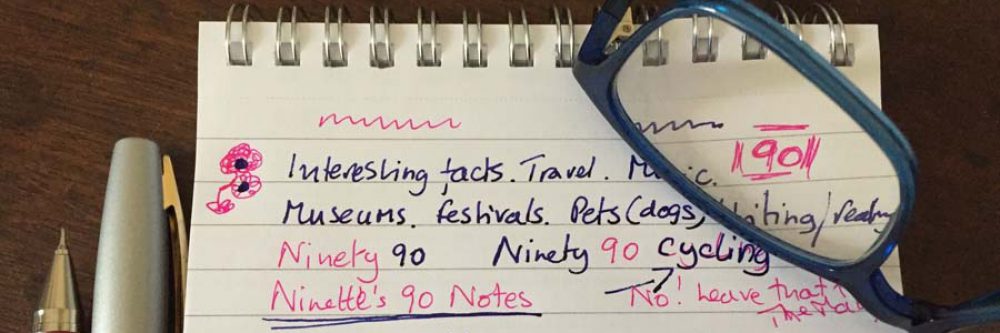 90
Interesting facts. Travel. Music.
Museums. festivals. Pets (dogs) Writing/
Ninety 90 Ninety 90 cycling
Ninette's 90 Notes No! Leave that